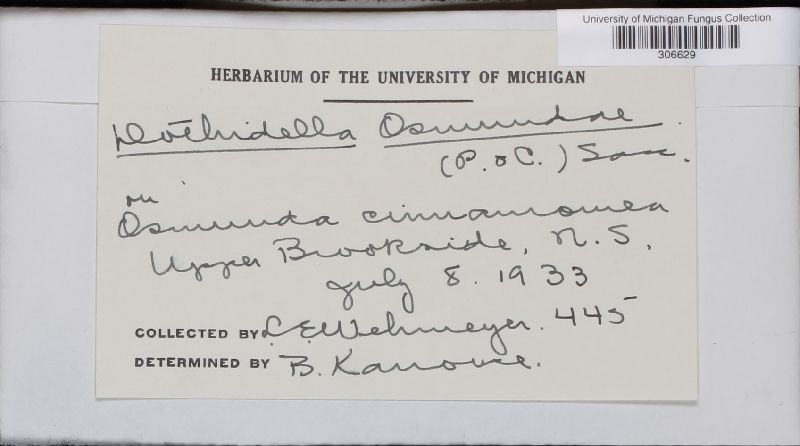 University of Michigan Fungus Collection
306629
HERBARIUM OF THE UNIVERSITY OF MICHIGAN
Dothidella Osmundae
(P. & C.) Sacc.
on
Osmunda cinnamomea
Upper Brookside, N.S.
July 8. 1933
COLLECTED BY L. E. Wehmeyer. 445
DETERMINED BY B. Kanouse.